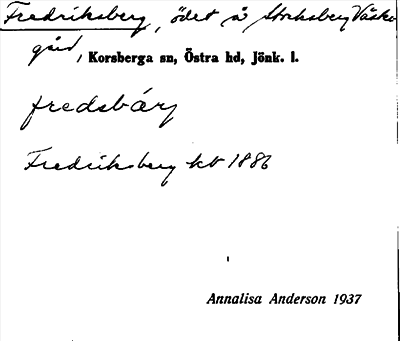 Fredriksberg, ödet å Stocksberg Väster
gård, Korsberga sn, Östra hd, Jönk. l.
fredsbárj
Fredriksberg kt 1886
Annalisa Anderson 1937